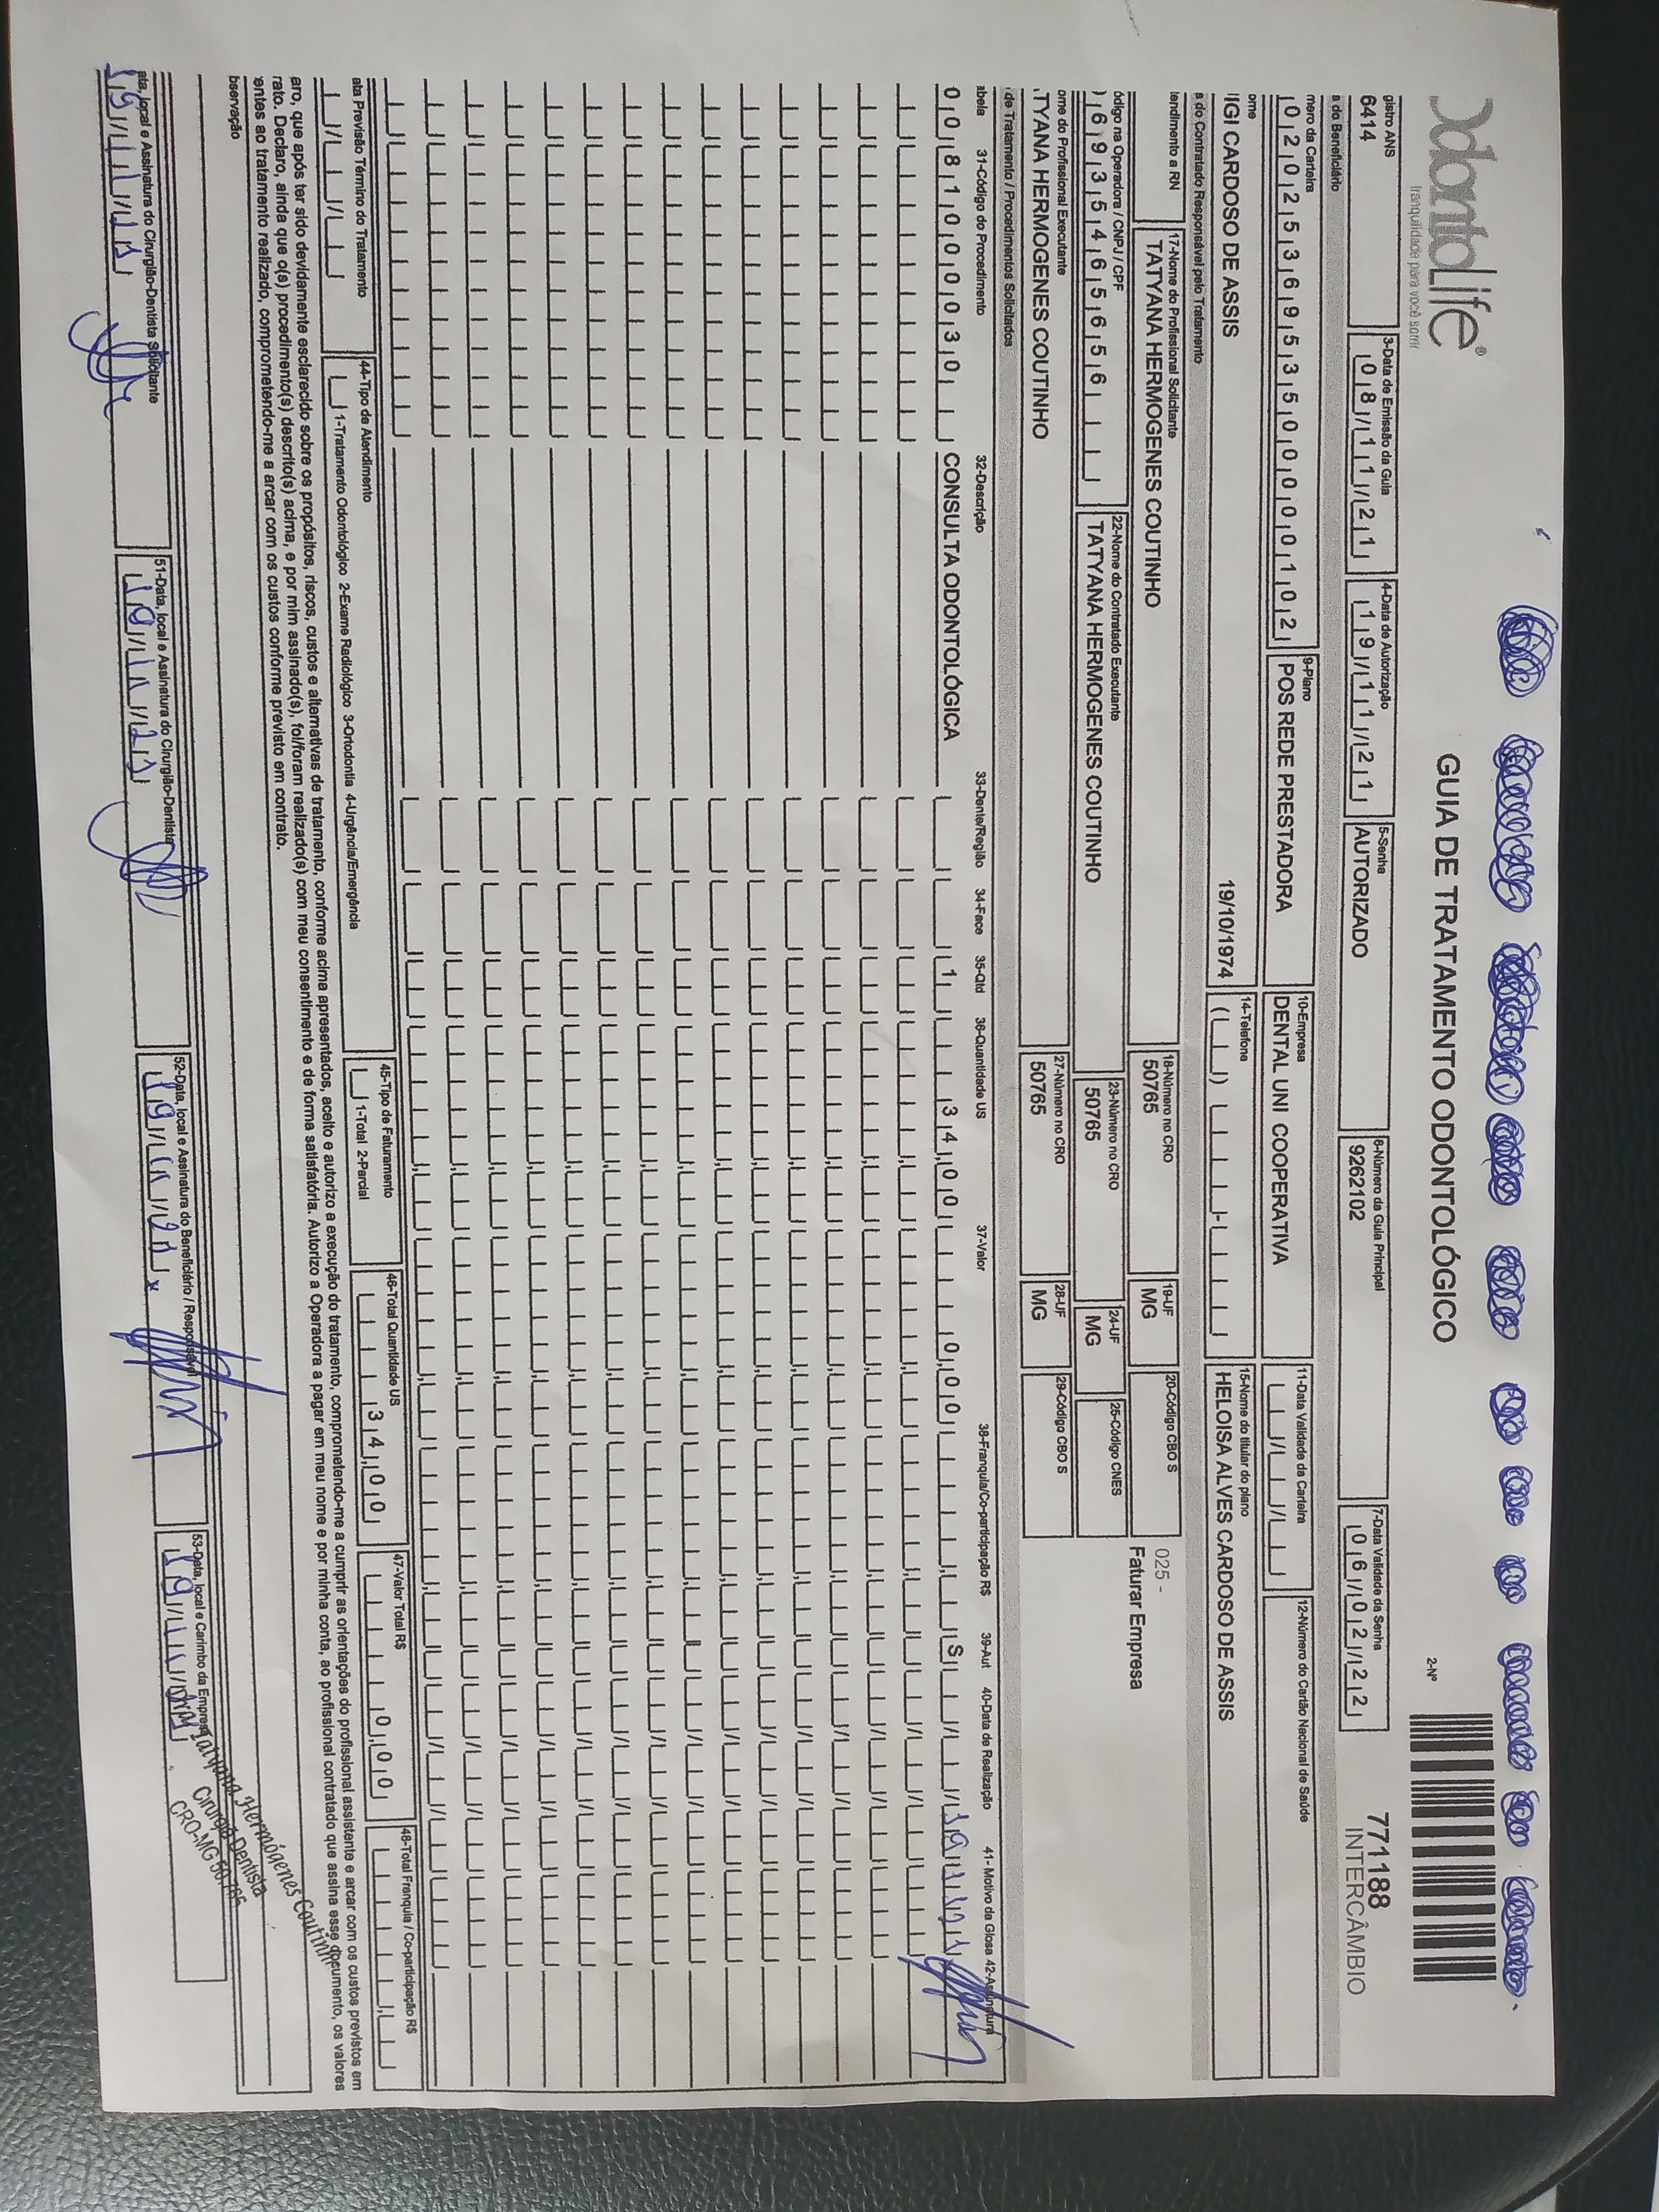 OdontoLife®
tranquilidade para você sorrir
GUIA DE TRATAMENTO ODONTOLÓGICO
2-Nº
771188
INTERCÂMBIO
gistro ANS
6414
3-Data de Emissão da Guia
08/11/21
4-Data de Autorização
19/11/21
5-Senha
AUTORIZADO
6-Número da Guia Principal
9262102
7-Data Validade da Senha
06/02/22
a do Beneficiário
mero da Carteira
02025369535000000102
9-Plano
POS REDE PRESTADORA
10-Empresa
DENTAL UNI COOPERATIVA
11-Data Validade da Carteira
12-Número do Cartão Nacional de Saúde
ome
IGI CARDOSO DE ASSIS
19/10/1974
14-Telefone
15-Nome do titular do plano
HELOISA ALVES CARDOSO DE ASSIS
a do Contratado Responsável pelo Tratamento
endimento a RN
17-Nome do Profissional Solicitante
TATYANA HERMOGENES COUTINHO
18-Número no CRO
50765
19-UF
MG
20-Código CBO S
025 -
Faturar Empresa
ódigo na Operadora / CNPJ / CPF
06935465656
22-Nome do Contratado Executante
TATYANA HERMOGENES COUTINHO
23-Número no CRO
50765
24-UF
MG
25-Código CNES
ome do Profissional Executante
TYANA HERMOGENES COUTINHO
27-Número no CRO
50765
28-UF
MG
29-Código CBO S
de Tratamento / Procedimentos Solicitados
abela 31-Código do Procedimento 32-Descrição 33-Dente/Região 34-Face 35-Qtd 36-Quantidade US 37-Valor 38-Franquia/Co-participação R$ 39-Aut 40-Data de Realização 41- Motivo da Glosa 42-Assinatura
00 81000030 CONSULTA ODONTOLÓGICA 1 34,00 0,00 S 19/11/21
ata Previsão Término do Tratamento
44-Tipo de Atendimento
1-Tratamento Odontológico 2-Exame Radiológico 3-Ortodontia 4-Urgência/Emergência
45-Tipo de Faturamento
1-Total 2-Parcial
46-Total Quantidade US
34,00
47-Valor Total R$
0,00
48-Total Franquia / Co-participação R$
aro, que após ter sido devidamente esclarecido sobre os propósitos, riscos, custos e alternativas de tratamento, conforme acima apresentados, aceito e autorizo a execução do tratamento, comprometendo-me a cumprir as orientações do profissional assistente e arcar com os custos previstos em
rato. Declaro, ainda que o(s) procedimento(s) descrito(s) acima, e por mim assinado(s), foi/foram realizado(s) com meu consentimento e de forma satisfatória. Autorizo a Operadora a pagar em meu nome e por minha conta, ao profissional contratado que assina esse documento, os valores
entes ao tratamento realizado, comprometendo-me a arcar com os custos conforme previsto em contrato.
bservação
ata, local e Assinatura do Cirurgião-Dentista Solicitante
19/11/21
51-Data, local e Assinatura do Cirurgião-Dentista
19/11/21
52-Data, local e Assinatura do Beneficiário / Responsável
19/11/21 x
53-Data, local e Carimbo da Empresa
19/11/21
Tatyana Hermógenes Coutinho
Cirurgiã Dentista
CRO-MG 50.765